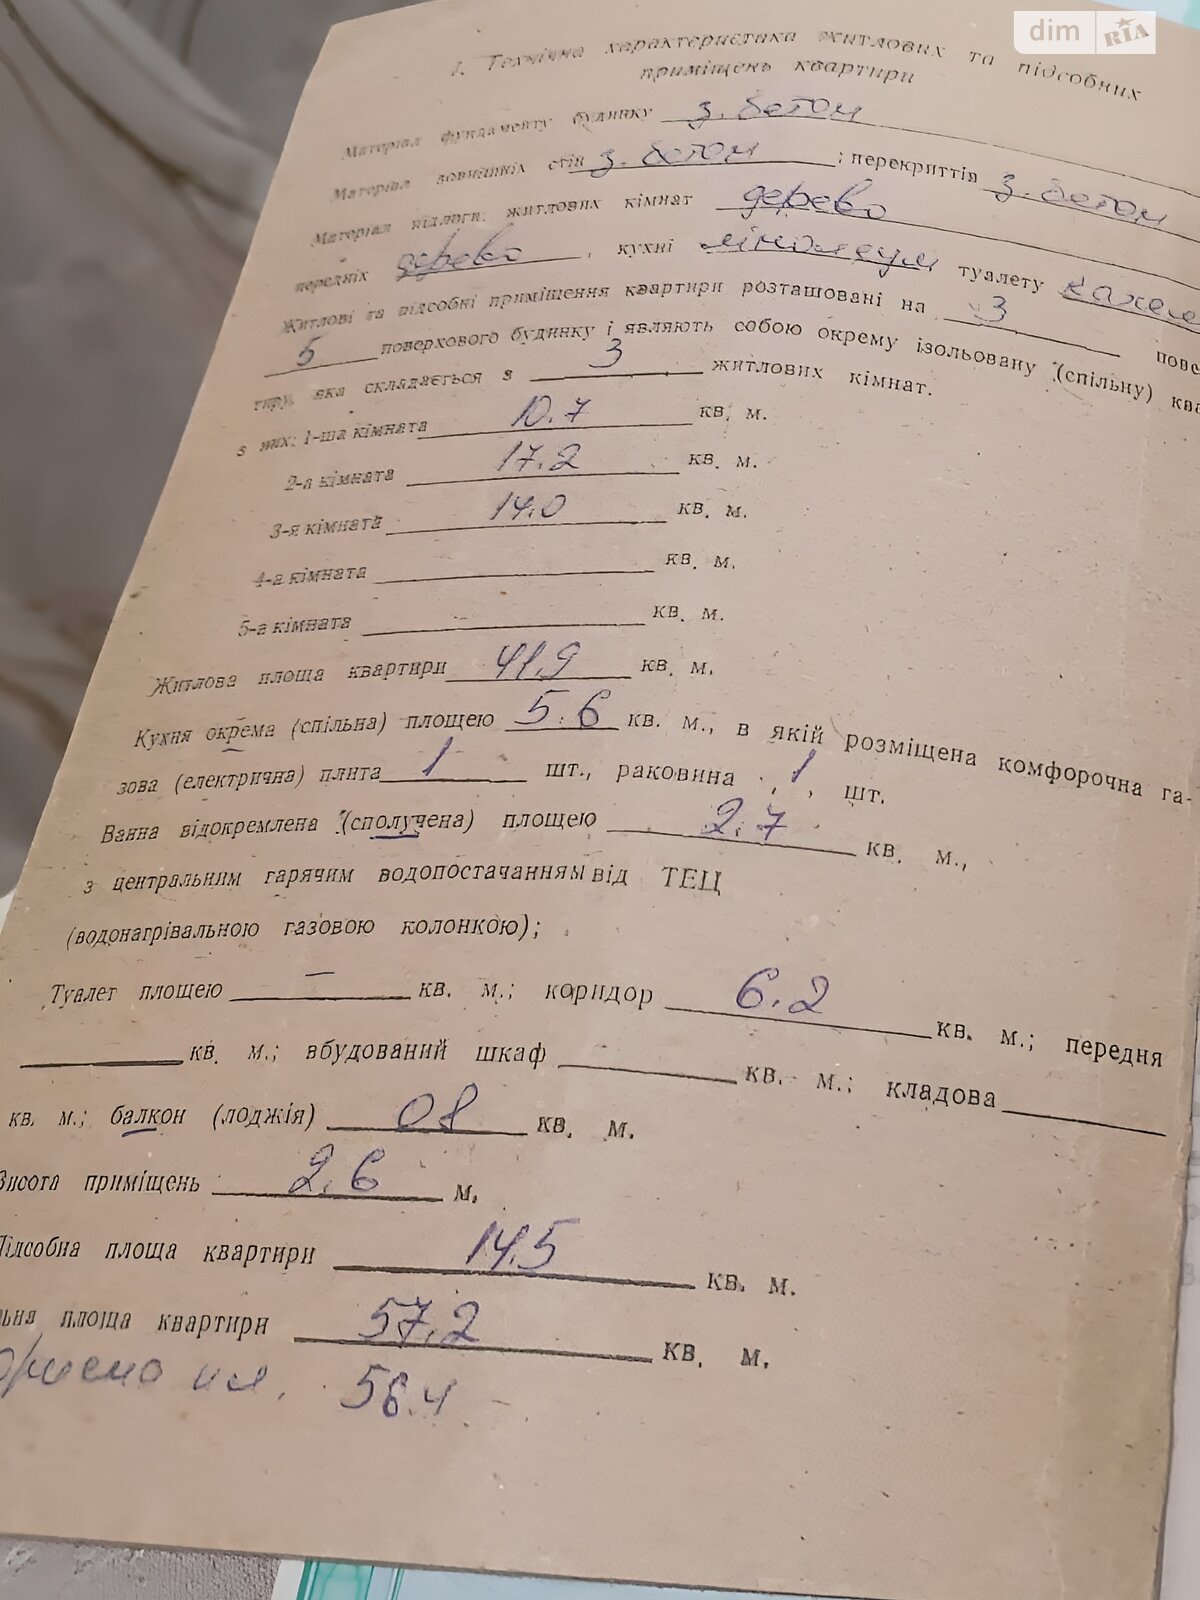 dim RIA
1. Технічна характеристика житлових та підсобних
приміщень квартири
Матеріал фундаменту будинку з. бетон
Матеріал зовнішніх стін з. бетон ; перекриття з. бетон
Матеріал підлоги: житлових кімнат дерево
передніх дерево , кухні лінолеум туалету кахель
Житлові та підсобні приміщення квартири розташовані на 3 пове
5 поверхового будинку і являють собою окрему ізольовану (спільну) ква
тиру, яка складається з 3 житлових кімнат.
з них: 1-ша кімната 10.7 кв. м.
2-а кімната 17.2 кв. м.
3-я кімната 14.0 кв. м.
4-а кімната кв. м.
5-а кімната кв. м.
Житлова площа квартири 41.9 кв. м.
Кухня окрема (спільна) площею 5.6 кв. м., в якій розміщена комфорочна га-
зова (електрична) плита 1 шт., раковина 1, шт.
Ванна відокремлена (сполучена) площею 2.7 кв. м.,
з центральним гарячим водопостачанням від ТЕЦ
(водонагрівальною газовою колонкою);
Туалет площею — кв. м.; коридор 6.2 кв. м.; передня
кв. м.; вбудований шкаф кв. м.; кладова
кв. м.; балкон (лоджія) 08 кв. м.
Висота приміщень 2.6 м.
Підсобна площа квартири 14.5 кв. м.
ьна площа квартири 57.2 кв. м.
56.4